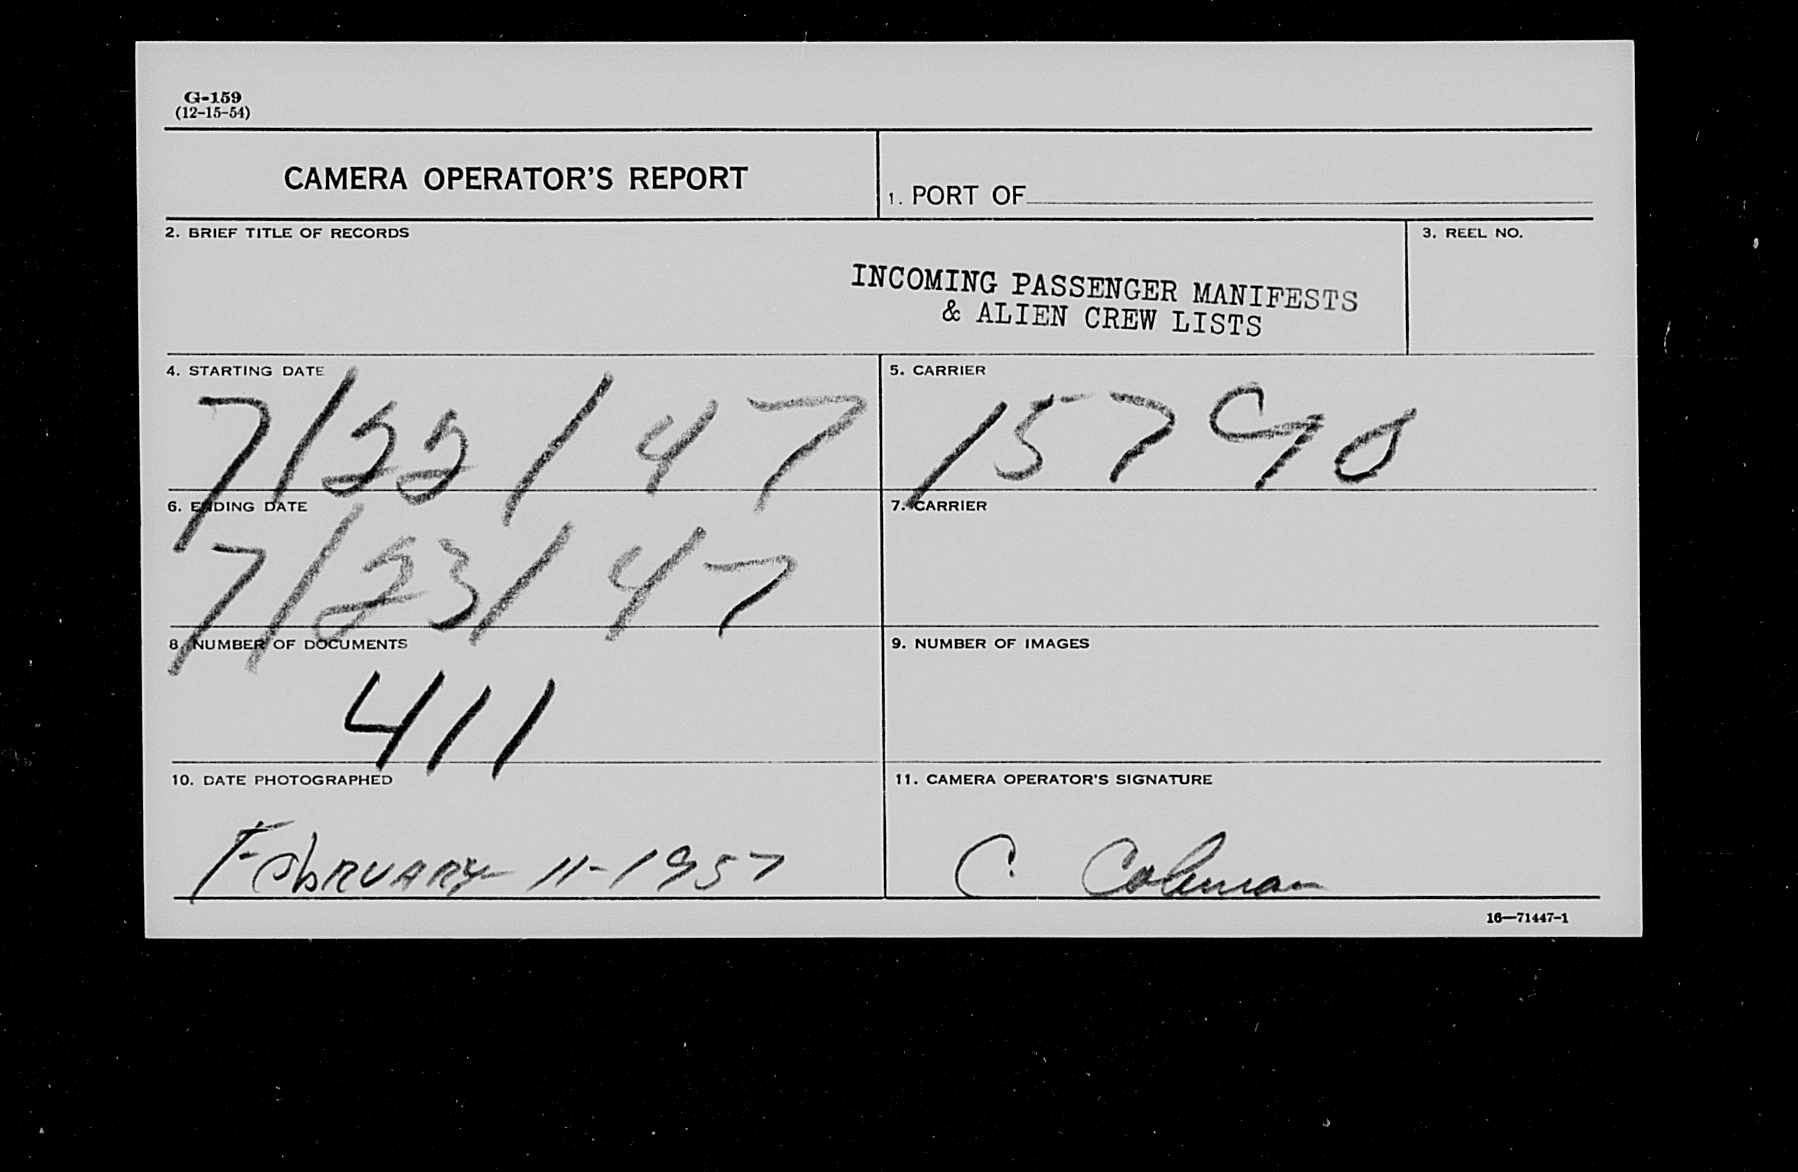 G-159
(12-15-54)
CAMERA OPERATOR'S REPORT
1. PORT OF
2. BRIEF TITLE OF RECORDS
3. REEL NO.
INCOMING PASSENGER MANIFESTS
& ALIEN CREW LISTS
4. STARTING DATE
7/22/47
5. CARRIER
15790
6. ENDING DATE
7/23/47
7. CARRIER
8. NUMBER OF DOCUMENTS
411
9. NUMBER OF IMAGES
10. DATE PHOTOGRAPHED
February 11-1957
11. CAMERA OPERATOR'S SIGNATURE
C. Coleman
16—71447-1